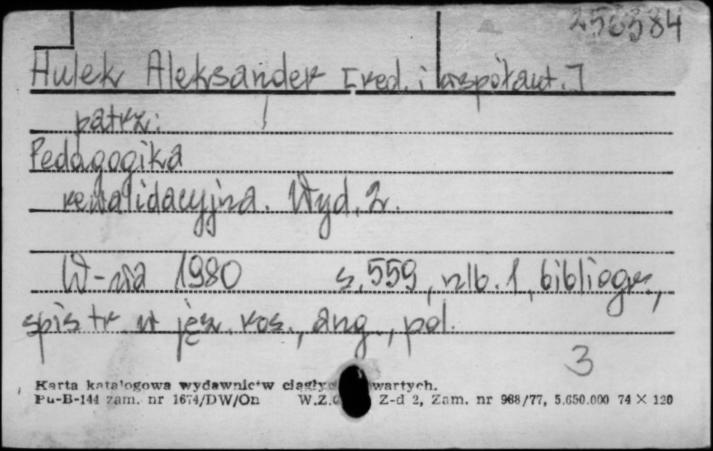 256584
Hulek Aleksander [red. i współaut.]
patrz:
Pedagogika
rewalidacyjna. Wyd. 2.
W-wa 1980 s. 559, nlb. 1, bibliogr.,
spis tr. w jęz. ros., ang., pol.
3
Karta katalogowa wydawnictw ciągłych wartych.
Pu-B-144 zam. nr 1674/DW/On W.Z. Z-d 2, Zam. nr 988/77, 5.650.000 74 × 120